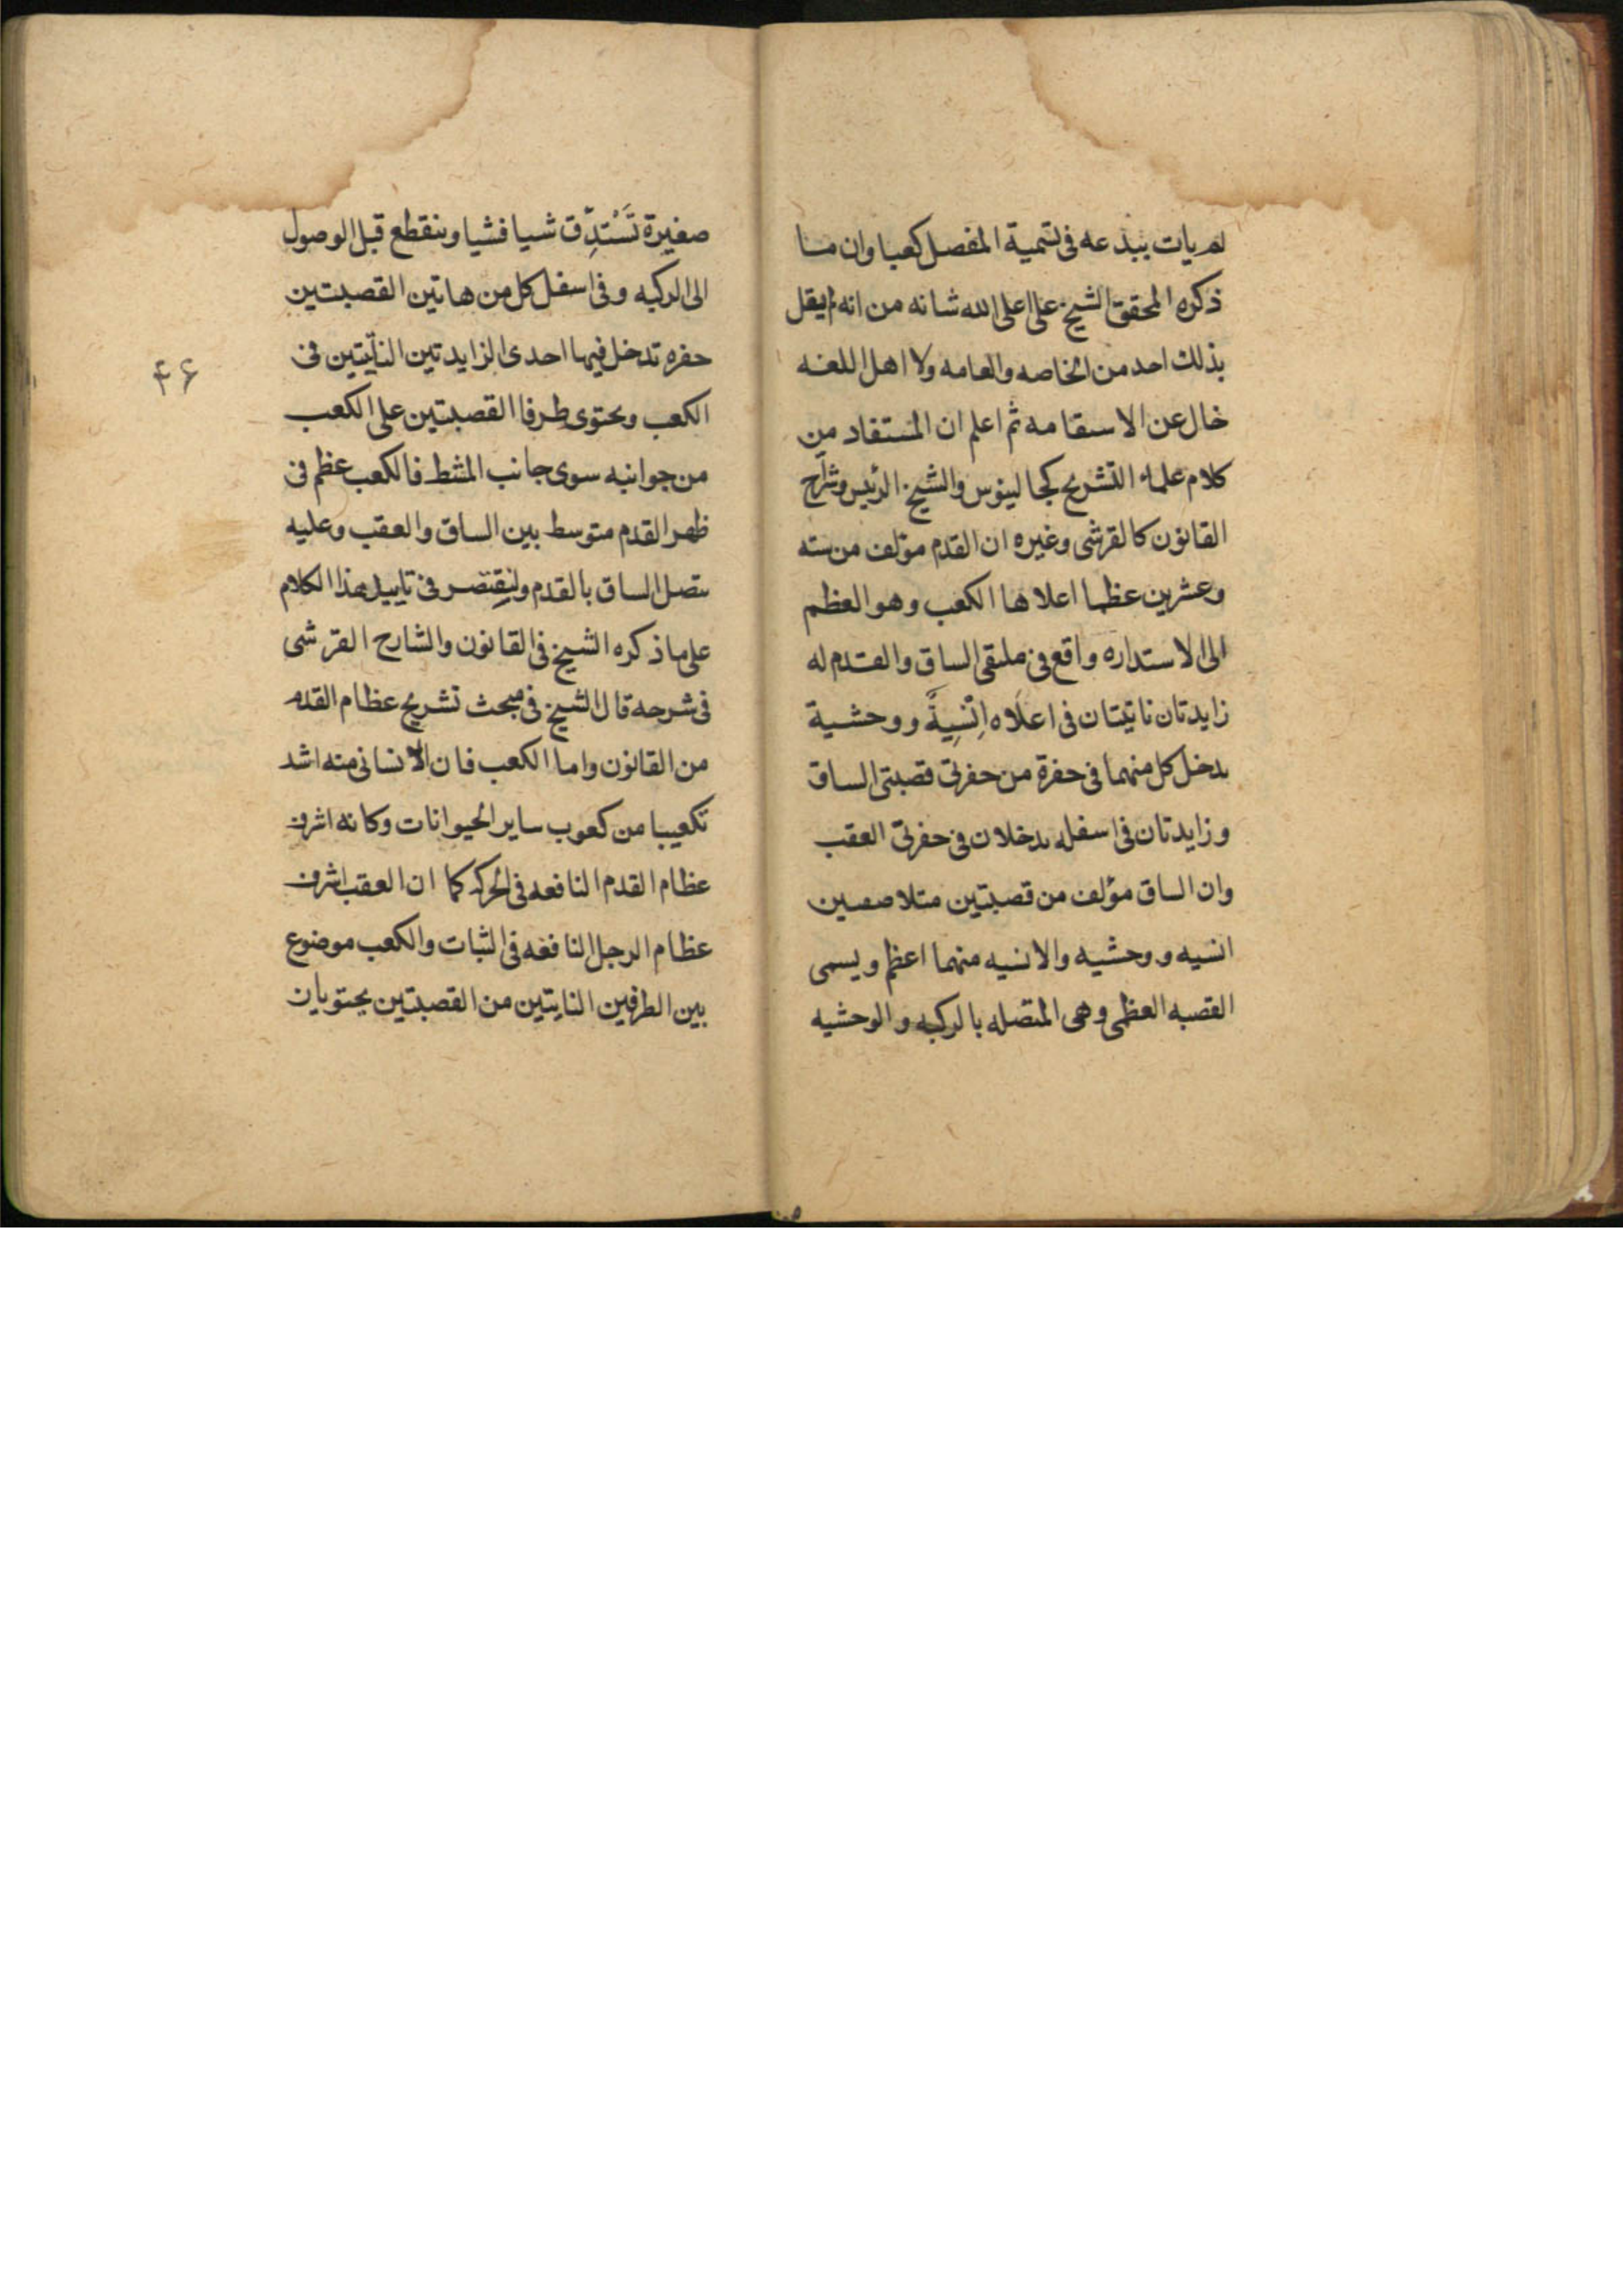 لم يات ببدعه فى تسمية المفصل كعبا وان ما
ذكره المحقق الشيخ على اعلى الله شانه من انه لم يقل
بذلك احد من الخاصه والعامه ولا اهل اللغه
خال عن الاستقامه ثم اعلم ان المستفاد من
كلام علماء التشريح كجالينوس والشيخ الرئيس وشارح
القانون كالقرشى وغيره ان القدم مؤلف من سته
وعشرين عظما اعلاها الكعب وهو العظم
الى الاستداره واقع فى ملتقى الساق والقدم له
زايدتان ناتيتان فى اعلاه اِنْسِيةً ووحشية
يدخل كل منهما فى حفرة من حفرتى قصبتى الساق
وزايدتان فى اسفله يدخلان فى حفرتى العقب
وان الساق مؤلف من قصبتين متلاصقين
انسيه ووحشيه والانسيه منهما اعظم ويسمى
القصبه العظمى وهى المتصله بالركبه والوحشيه
صغيرة تَسْتدِّق شيا فشيا وينقطع قبل الوصول
الى الركبه وفى اسفل كل من هاتين القصبتين
حفره تدخل فيها احدى الزايدتين الناتيتين فى
الكعب ويحتوى طرفا القصبتين على الكعب
من جوانبه سوى جانب المشط فالكعب عظم فى
ظهر القدم متوسط بين الساق والعقب وعليه
يتصل الساق بالقدم ولنقتصر فى تاييد هذا الكلام
على ما ذكره الشيخ فى القانون والشارح القرشى
فى شرحه قال الشيخ فى مبحث تشريح عظام القدم
من القانون واما الكعب فان الانسانى منه اشد
تكعيبا من كعوب ساير الحيوانات وكانه اشرف
عظام القدم النافعه فى الحركه كما ان العقب اشرف
عظام الرجل النافعه فى الثبات والكعب موضوع
بين الطرفين الناتيتين من القصبتين يحتويان
۴۶